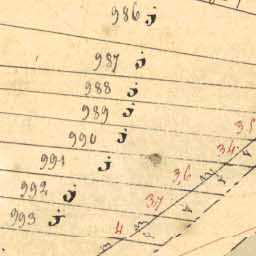 986 j
987 j
988 j
989 j
990 j
991 j
992 j
993 j
35
34
36
37
4